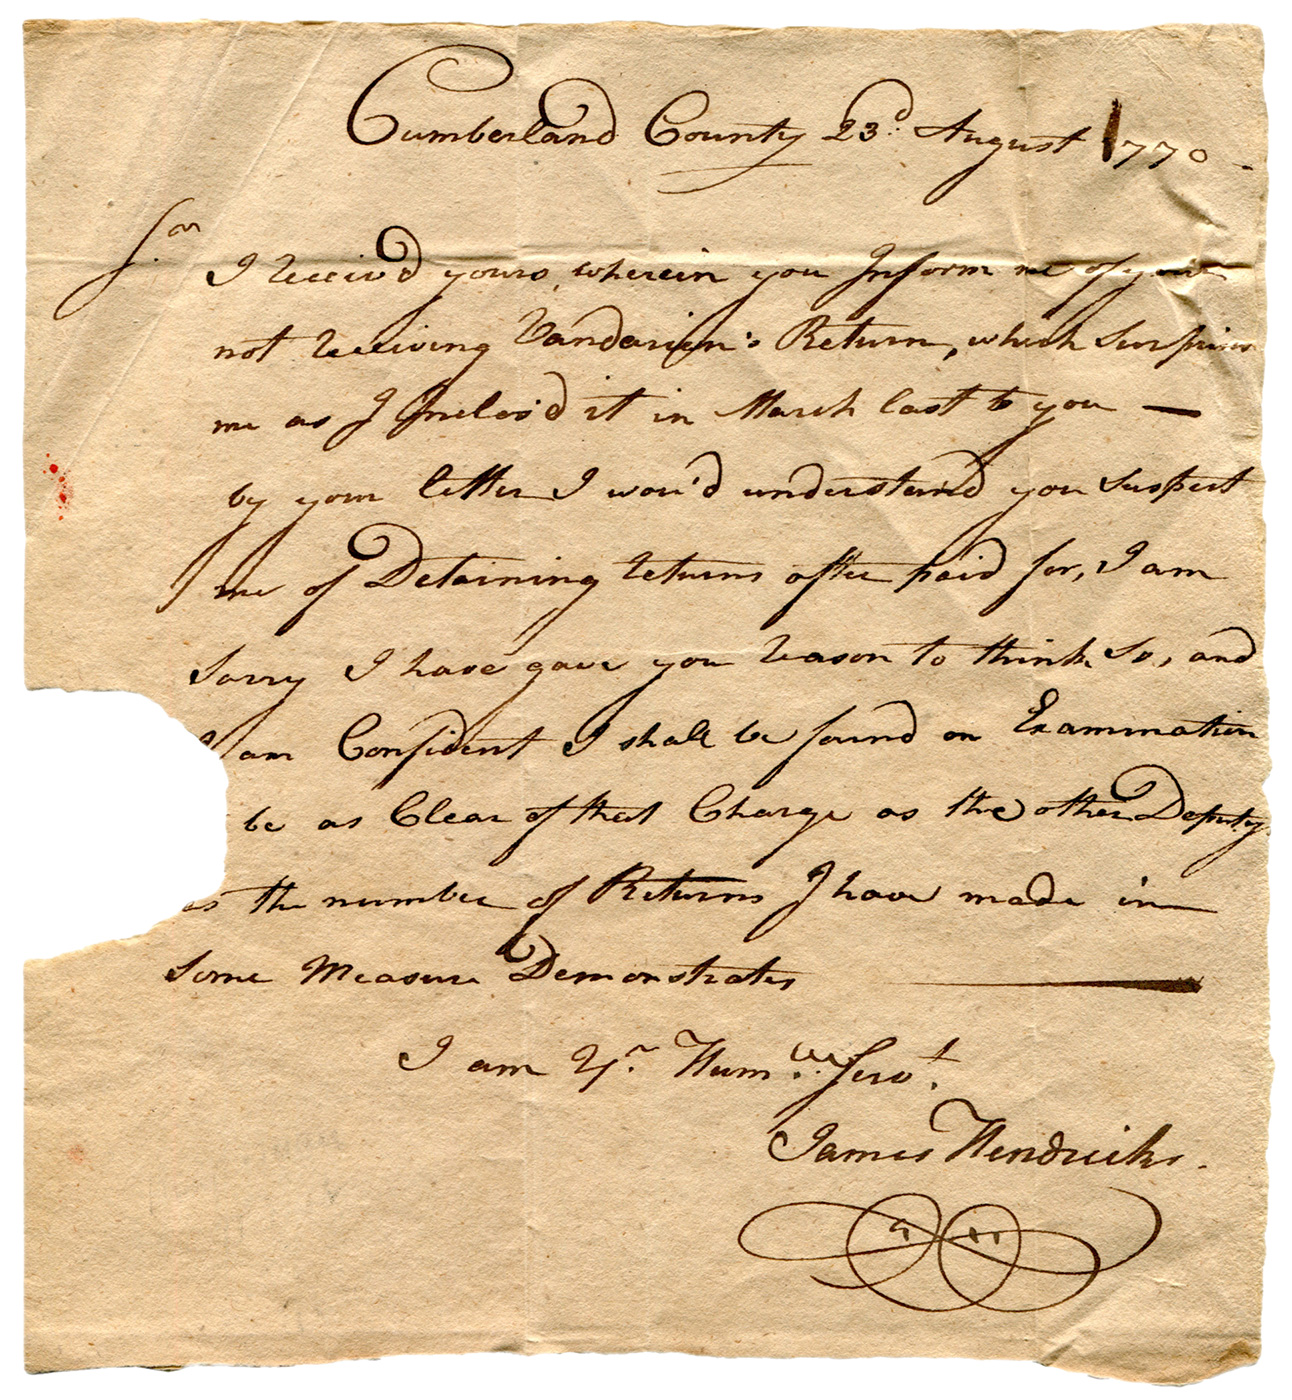 Cumberland County 23d. August 1770 -
Sir
I receiv'd yours, wherein you Inform me of your
not receiving Vandarien's Return, which Surprises
me as I Inclos'd it in March last to you —
by your letter I wou'd understand you Suspect
me of Detaining returns after paid for, I am
Sorry I have gave you reason to think So, and
I am Confident I shall be found on Examination
be as Clear of that Charge as the other Deputy
as the number of Returns I have made in
Some Measure Demonstrates —
I am Yr. Humble Servt.
James Hendricks.